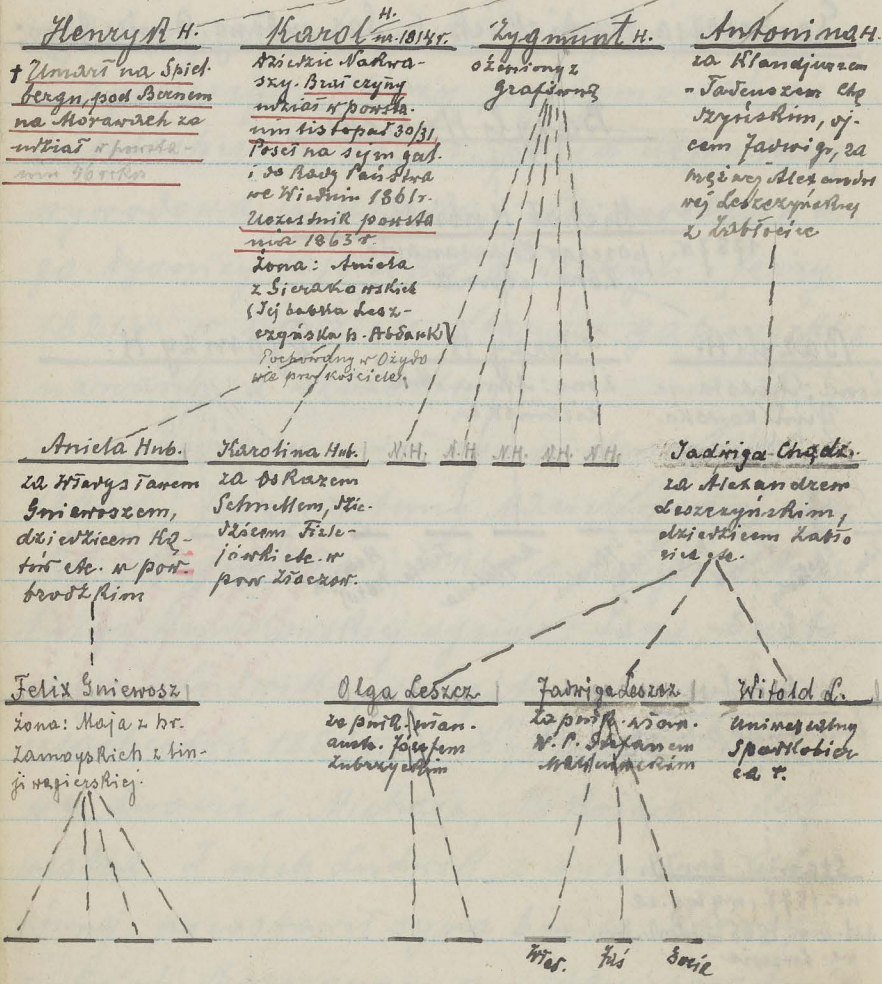 Henryk H.
† Umarł na Spiel-
bergu, pod Bernem
na Morawach za
udział w powsta-
niu 46 roku
Karol H. ur. 1814 r.
Dziedzic Nakwa-
szy. Brał czynny
udział w powsta.
niu listopad 30/31,
Poseł na sejm gal.
i do Rady Państwa
we Wiedniu 1861 r.
Uczestnik powsta
nia 1863 r.
Żona: Aniela
z Sierakowskich
(Jej babka Lesz-
czyńska h. Abdank)
Pochowany w Ożydo
wie przy kościele.
Zygmunt H.
ożeniony z
Grafówną
Antonina H.
za Klaudjuszem
-Tadeuszem Chą
dzyńskim, oj-
cem Jadwigi, za
mężnej Alexandro
wej Leszczyńskiej
z Zabłociec
Aniela Hub.
za Władysławem
Gniewoszem,
dziedzicem Ką-
tów etc. w pow.
brodzkim
Karolina Hub.
za Oskarem
Schnellem, dzie-
dzicem Firle-
jówki etc. w
pow Złoczow.
N.H. N.H N.H. N.H. N.H.
Jadwiga Chądz.
za Alexandrem
Leszczyńskim,
dziedzicem Zabło
ciec etc.
Felix Gniewosz
żona: Maja z hr.
Zamoyskich z lin-
ji węgierskiej.
Olga Leszcz.
za pułk.
austr. Józefem
Zubrzyckim
Jadwiga Leszcz
za pułk.
W. P. Stefanem
Witold L.
Uniwersalny
Spadkobier
ca r.
Wład. Jaś Zosia